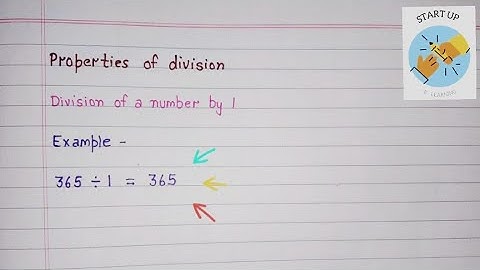 START UP
E-LEARNING
Properties of division
Division of a number by 1
Example -
365 ÷ 1 = 365